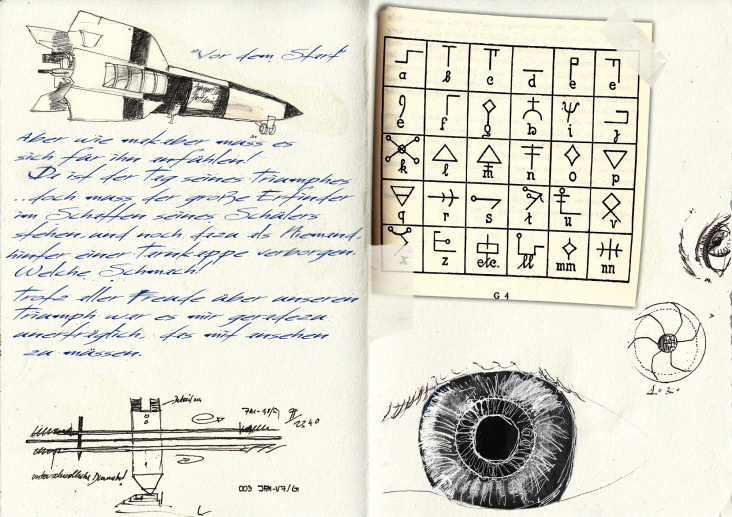 "Vor dem Start"
Aber wie makaber muss es
sich für ihn anfühlen!
Da ist der Tag seines Triumphes
..doch muss der große Erfinder
im Schatten seines Schülers
stehen, und noch dazu als Niemand,
hinter einer Tarnkappe verborgen.
Welche Schmach!
Trotz aller Freude über unseren
Triumph war es mir geradezu
unerträglich, das mit ansehen
zu müssen.
003 JPM-V7/G1
a b c d e e
e f g h i j
k l m n o p
q r s t u v
x z etc. ll mm nn
G 4